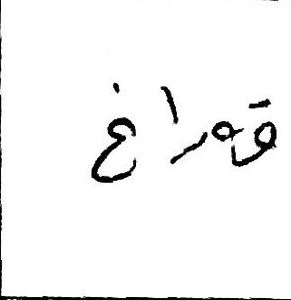 قوراغ